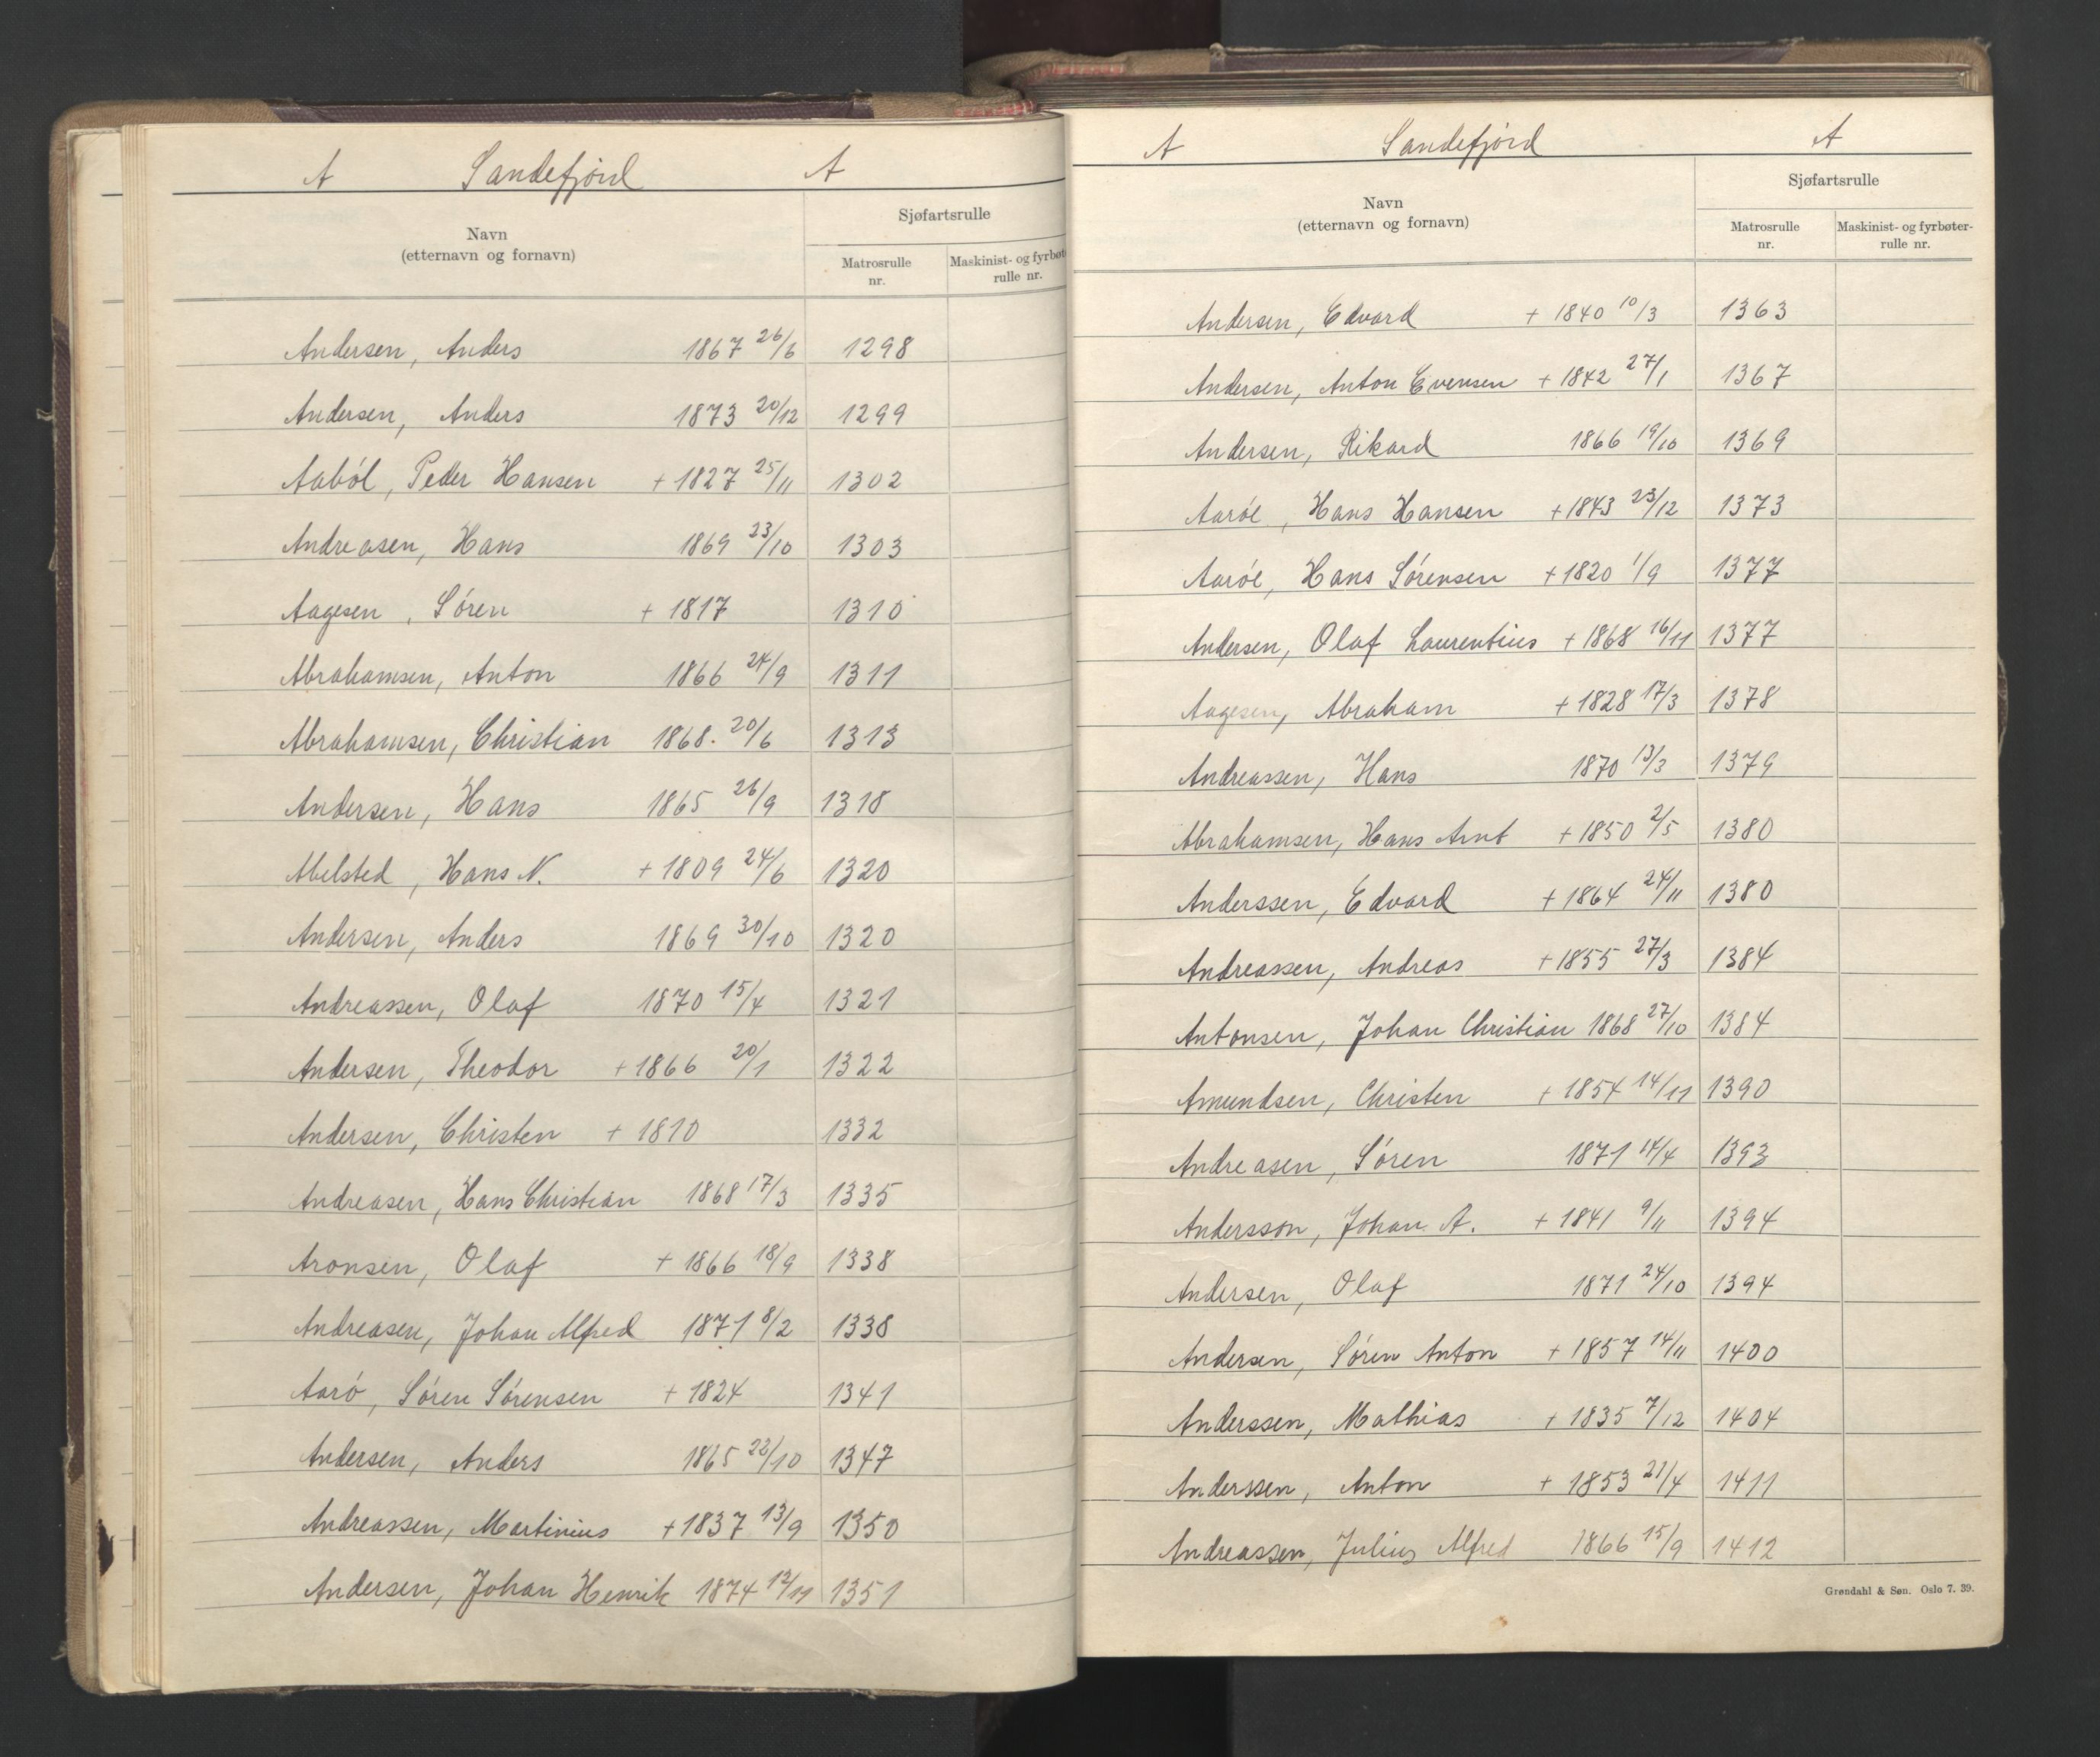 A Sandefjord A
Navn
(etternavn og fornavn)
Sjøfartsrulle
Matrosrulle
nr.
Maskinist- og fyrbøt
rulle nr.
Andersen, Anders 1867 26/6 1298
Andersen, Anders 1873 20/12 1299
Aaból, Peder Hansen + 1827 25/11 1302
Andreasen, Hans 1869 23/10 1303
Aagesen, Sóren + 1817 1310
Abrahamsen, Anton 1866 24/9 1311
Abrahamsen, Christian 1868. 20/6 1313
Andersen, Hans 1865 26/9 1318
Abelsted, Hans N. + 1809 24/6 1320
Andersen, Anders 1869 30/10 1320
Andreassen, Olaf 1870 15/4 1321
Andersen, Theodor + 1866 20/1 1322
Andersen, Christen + 1810 1332
Andreasen, Hans Christian 1868 17/3 1335
Aronsen, Olaf + 1866 18/9 1338
Andreasen, Johan Alfred 1871 8/2 1338
Aaró, Sóren Sórensen + 1824 1341
Andersen, Anders 1865 22/10 1347
Andreassen, Martinius + 1837 13/9 1350
Andersen, Johan Henrik 1874 12/11 1351
A Sandefjord A
Navn
(etternavn og fornavn)
Sjøfartsrulle
Matrosrulle
nr.
Maskinist- og fyrbøter-
rulle nr.
Andersen, Edvard + 1840 10/3 1363
Andersen, Anton Evensen + 1842 27/1 1367
Andersen, Rikard 1866 19/10 1369
Aaróe, Hans Hansen + 1843 23/12 1373
Aaróe, Hans Sórensen + 1820 1/9 1377
Andersen, Olaf Laurentius + 1868 16/11 1377
Aagesen, Abraham + 1828 17/3 1378
Andreassen, Hans 1870 13/3 1379
Abrahamsen, Hans Arnt + 1850 2/5 1380
Anderssen, Edvard + 1864 24/11 1380
Andreassen, Andreas + 1855 27/3 1384
Antonsen, Johan Christian 1868 27/10 1384
Amundsen, Christen + 1854 14/11 1390
Andreasen, Sóren 1871 14/4 1393
Andersson, Johan A. + 1841 9/11 1394
Andersen, Olaf 1871 24/10 1394
Andersen, Sóren Anton + 1857 14/11 1400
Anderssen, Mathias + 1835 7/12 1404
Anderssen, Anton + 1853 21/4 1411
Andreassen, Julius Alfred 1866 15/9 1412
Grøndahl & Søn. Oslo 7. 39.